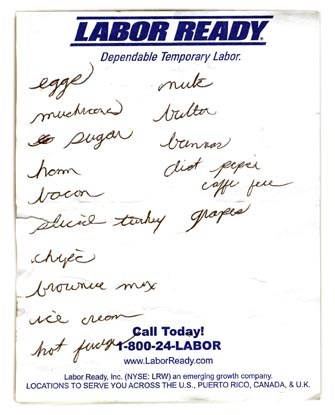 LABOR READY
Dependable Temporary Labor.
eggs
mushrooms
sugar
ham
bacon
sliced turkey
brownie mix
ice cream
hot fudge
milk
butter
bananas
diet pepsi
caffe free
grapes
Call Today!
1-800-24-LABOR
www.LaborReady.com
Labor Ready, Inc. (NYSE: LRW) an emerging growth company.
LOCATIONS TO SERVE YOU ACROSS THE U.S., PUERTO RICO, CANADA, & U.K.